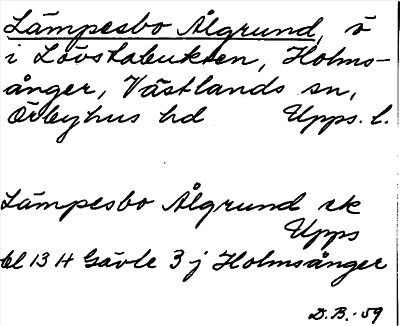 Lämpesbo Ålgrund, ö
i Lövstabukten, Holms-
ånger, Västlands sn,
Örbyhus hd Upps. l.
Lämpesbo Ålgrund ek
Upps
bl 13 H Gävle 3 j Holmsånger
D.B. -59